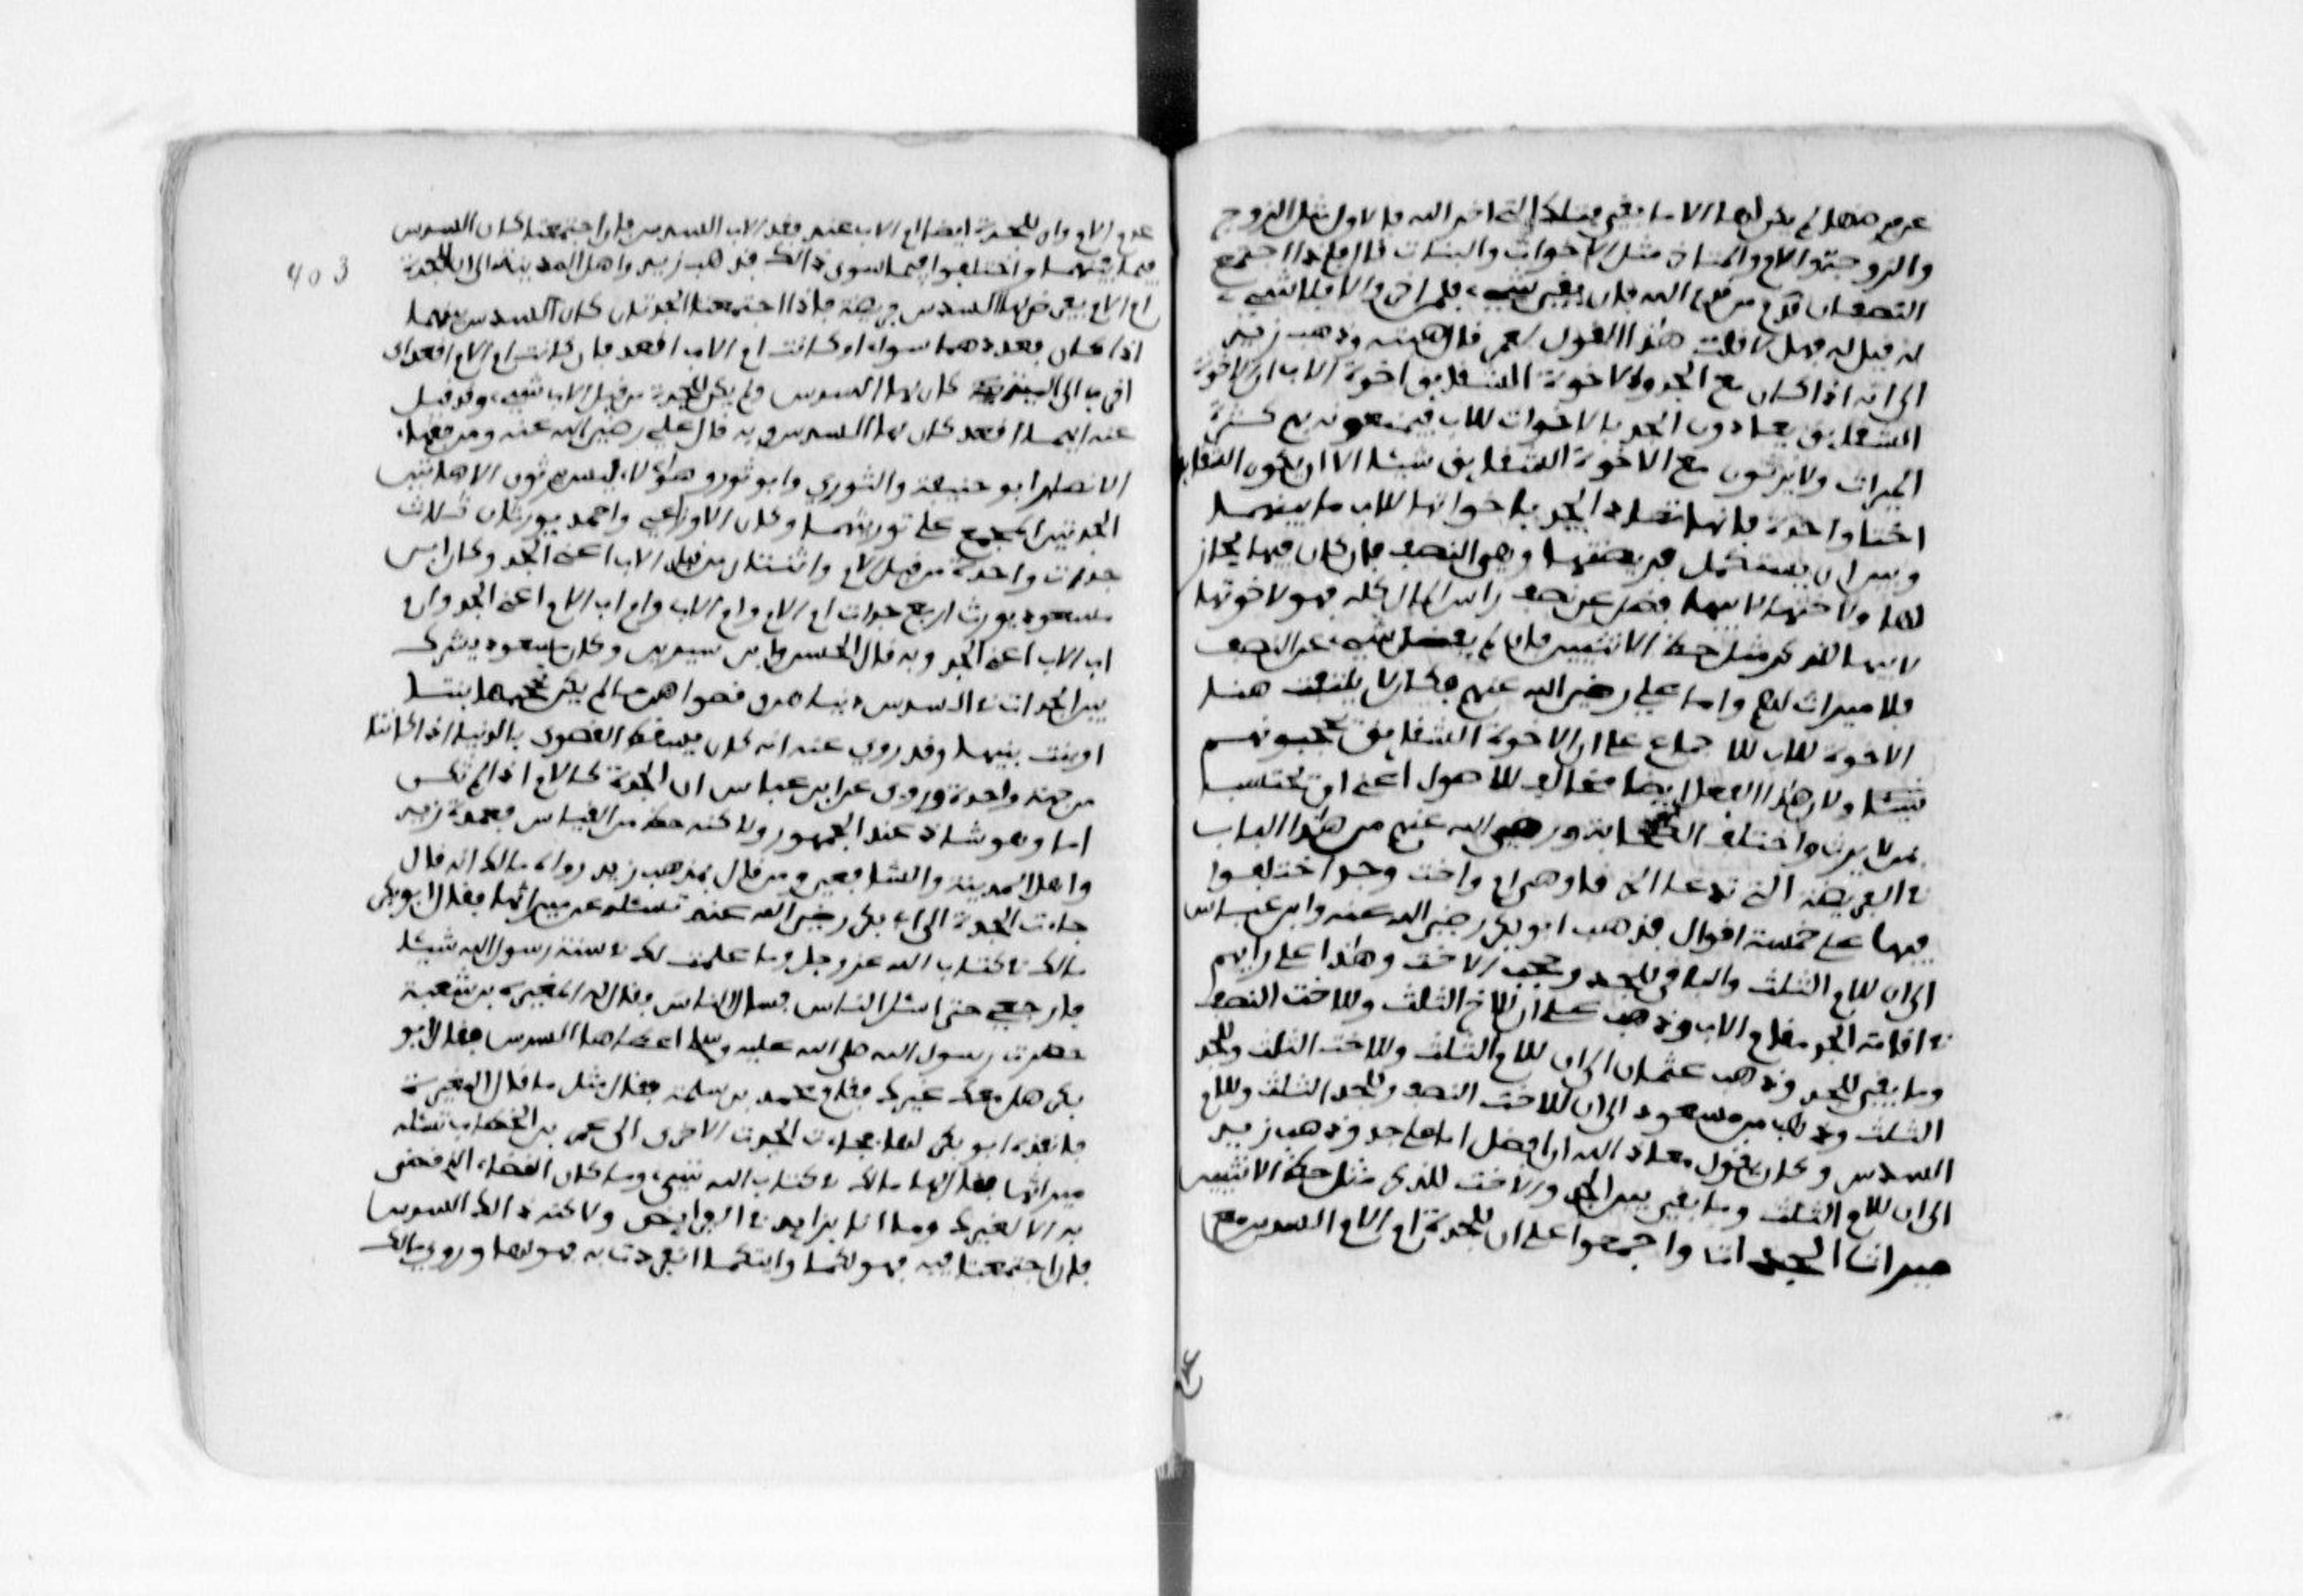 عن فريضتها لم يكن لها الا ما بقي فتلك التي اخر الله فالاول مثل الزوج
والزوجة والام والمتاخر مثل الاخوات والبنات قال فاذا اجتمع
الصنفان قدم من قدم الله فان بقي شيء فلمن اخر والا فلا شيء
له قيل له فهلا قلت هذا القول لعمر قال هبته وذهب زيد
الى انه اذا كان مع الجد والاخوة الشقايق اخوة الاب ان الاخوة
الشقايق يعادون الجد بالاخوات للاب فيمنعونه بهم كثرة
الميراث ولا يرثون مع الاخوة الشقايق شيئا الا ان يكون الشقايق
اختا واحدة فانها تعاد الجد باخوانها للاب ما بينهما
وبين ان يستكمل فريضتها وهي النصف فان كان فيها يحاز
لها ولاختها لابيها فضل عن نصف راس المال كله فهو لاخوتها
لابيها للذكر مثل حظ الانثيين فان لم يفضل شيء عن النصف
فلا ميراث لهم واما علي رضي الله عنهم فكان لا يلتفت هنا
الاخوة للاب للاجماع على ان الاخوة الشقايق تحجبونهم
شيئا ولان هذا الفعل ايضا مخالف للاصول اعني ان تحتسب
بمن لا يرث واختلف الصحابة رضي الله عنهم من هذا الباب
في الفريضة التي تدعا الخرقا وهي ام واخت وجد اختلفوا
فيها على خمسة اقوال فذهب ابو بكر رضي الله عنه وابن عباس
الى ان للام الثلث والباقي للجد وحجب الاخت وهذا على رايهم
في اقامة الجد مقام الاب وذهب علي ان للام الثلث وللاخت النصف
وما بقي للجد وذهب عثمان الى ان للام الثلث وللاخت الثلث وللجد
الثلث وذهب بن مسعود الى ان للاخت النصف وللجد الثلث وللام
السدس وكان يقول معاذ الله ان افضل اما على جد وذهب زيد
الى ان للام الثلث وما بقي بين الجد والاخت للذكر مثل حظ الانثيين
ميراث الجدات واجمعوا على ان للجدة ام الام السدس مع
عدم الام وان للجدة ايضا ام الاب عند فقد الاب السدس فان اجتمعتا كان السدس
بينهما واختلفوا فيما سوى ذالك فذهب زيد واهل المدينة الى ان الجدة
ام الام يفرض لها السدس فريضة فاذا اجتمعتا الجدتان كان السدس بينهما
اذا كان قعددهما سواء او كانت ام الاب اقعد فان كانت ام الام اقعد اي
اقرب الى الميت كان لها السدس ولم يكن للجدة من قبل الاب شيء وقد قيل
عنه ايهما اقعد كان لها السدس وبه قال علي رضي الله عنه ومن فقهاء
الانصار ابو حنيفة والثوري وابو ثور وهؤلاء ليس يرثون الا هاتين
الجدتين المجمع على توريثهما وكان الاوزاعي واحمد يورثان ثلاث
جدات واحدة من قبل الام واثنتان من قبل الاب اعني الجد وكان ابن
مسعود يورث اربع جدات ام الام وام الاب وام اب الام اعني الجد وام
اب الاب اعني الجد وبه قال الحسن وابن سيرين وكان بن مسعود يشرك
بين الجدات في السدس دنياهن وقصواهن ما لم يكن تحجبها بنتها
او بنت بنتها وقد روي عنه انه كان يسقط القصوى بالدنيا اذا كانتا
من جهة واحدة وروي عن ابن عباس ان الجدة كالام اذا لم تكن
اما وهو شاذ عند الجمهور ولاكنه حظ من القياس فعمدة زيد
واهل المدينة والشافعي ومن قال بمذهب زيد رواه مالك انه قال
جاءت الجدة الى ابي بكر رضي الله عنه تسئله عن ميراثها فقال ابو بكر
مالك في كتاب الله عز وجل وما علمت لك في سنة رسول الله شيئا
فارجعي حتى اسئل الناس فسال الناس فقال له المغيرة بن شعبة
حضرت رسول الله صلى الله عليه وسلم اعطاها السدس فقال ابو
بكر هل معك غيرك فقام محمد بن سلمة فقال مثل ما قال المغيرة
فانفذه ابو بكر لها فجاءت الجدة الاخرى الى عمر بن الخطاب تسئله
ميراثها فقال لها مالك في كتاب الله شيء وما كان القضاء الذي قضى
به الا لغيرك وما انا بزايد في الفرايض ولاكنه ذالك السدس
فان اجتمعتما فيه فهو لكما وايتكما انفردت به فهو لها وروي مالك
403